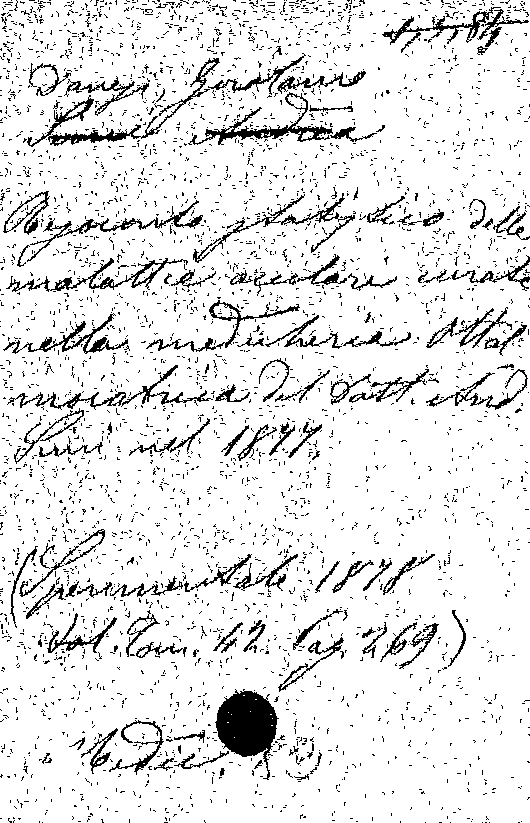 Danesi, Girolamo
Resoconto statistico delle
malattie oculari curate
nella medicheria Ottal
moiatrica del Dott. And.
Simi nel 1877.
(Sperimentale 1878
Vol. Tom. 42. Pag. 269)
Medic.